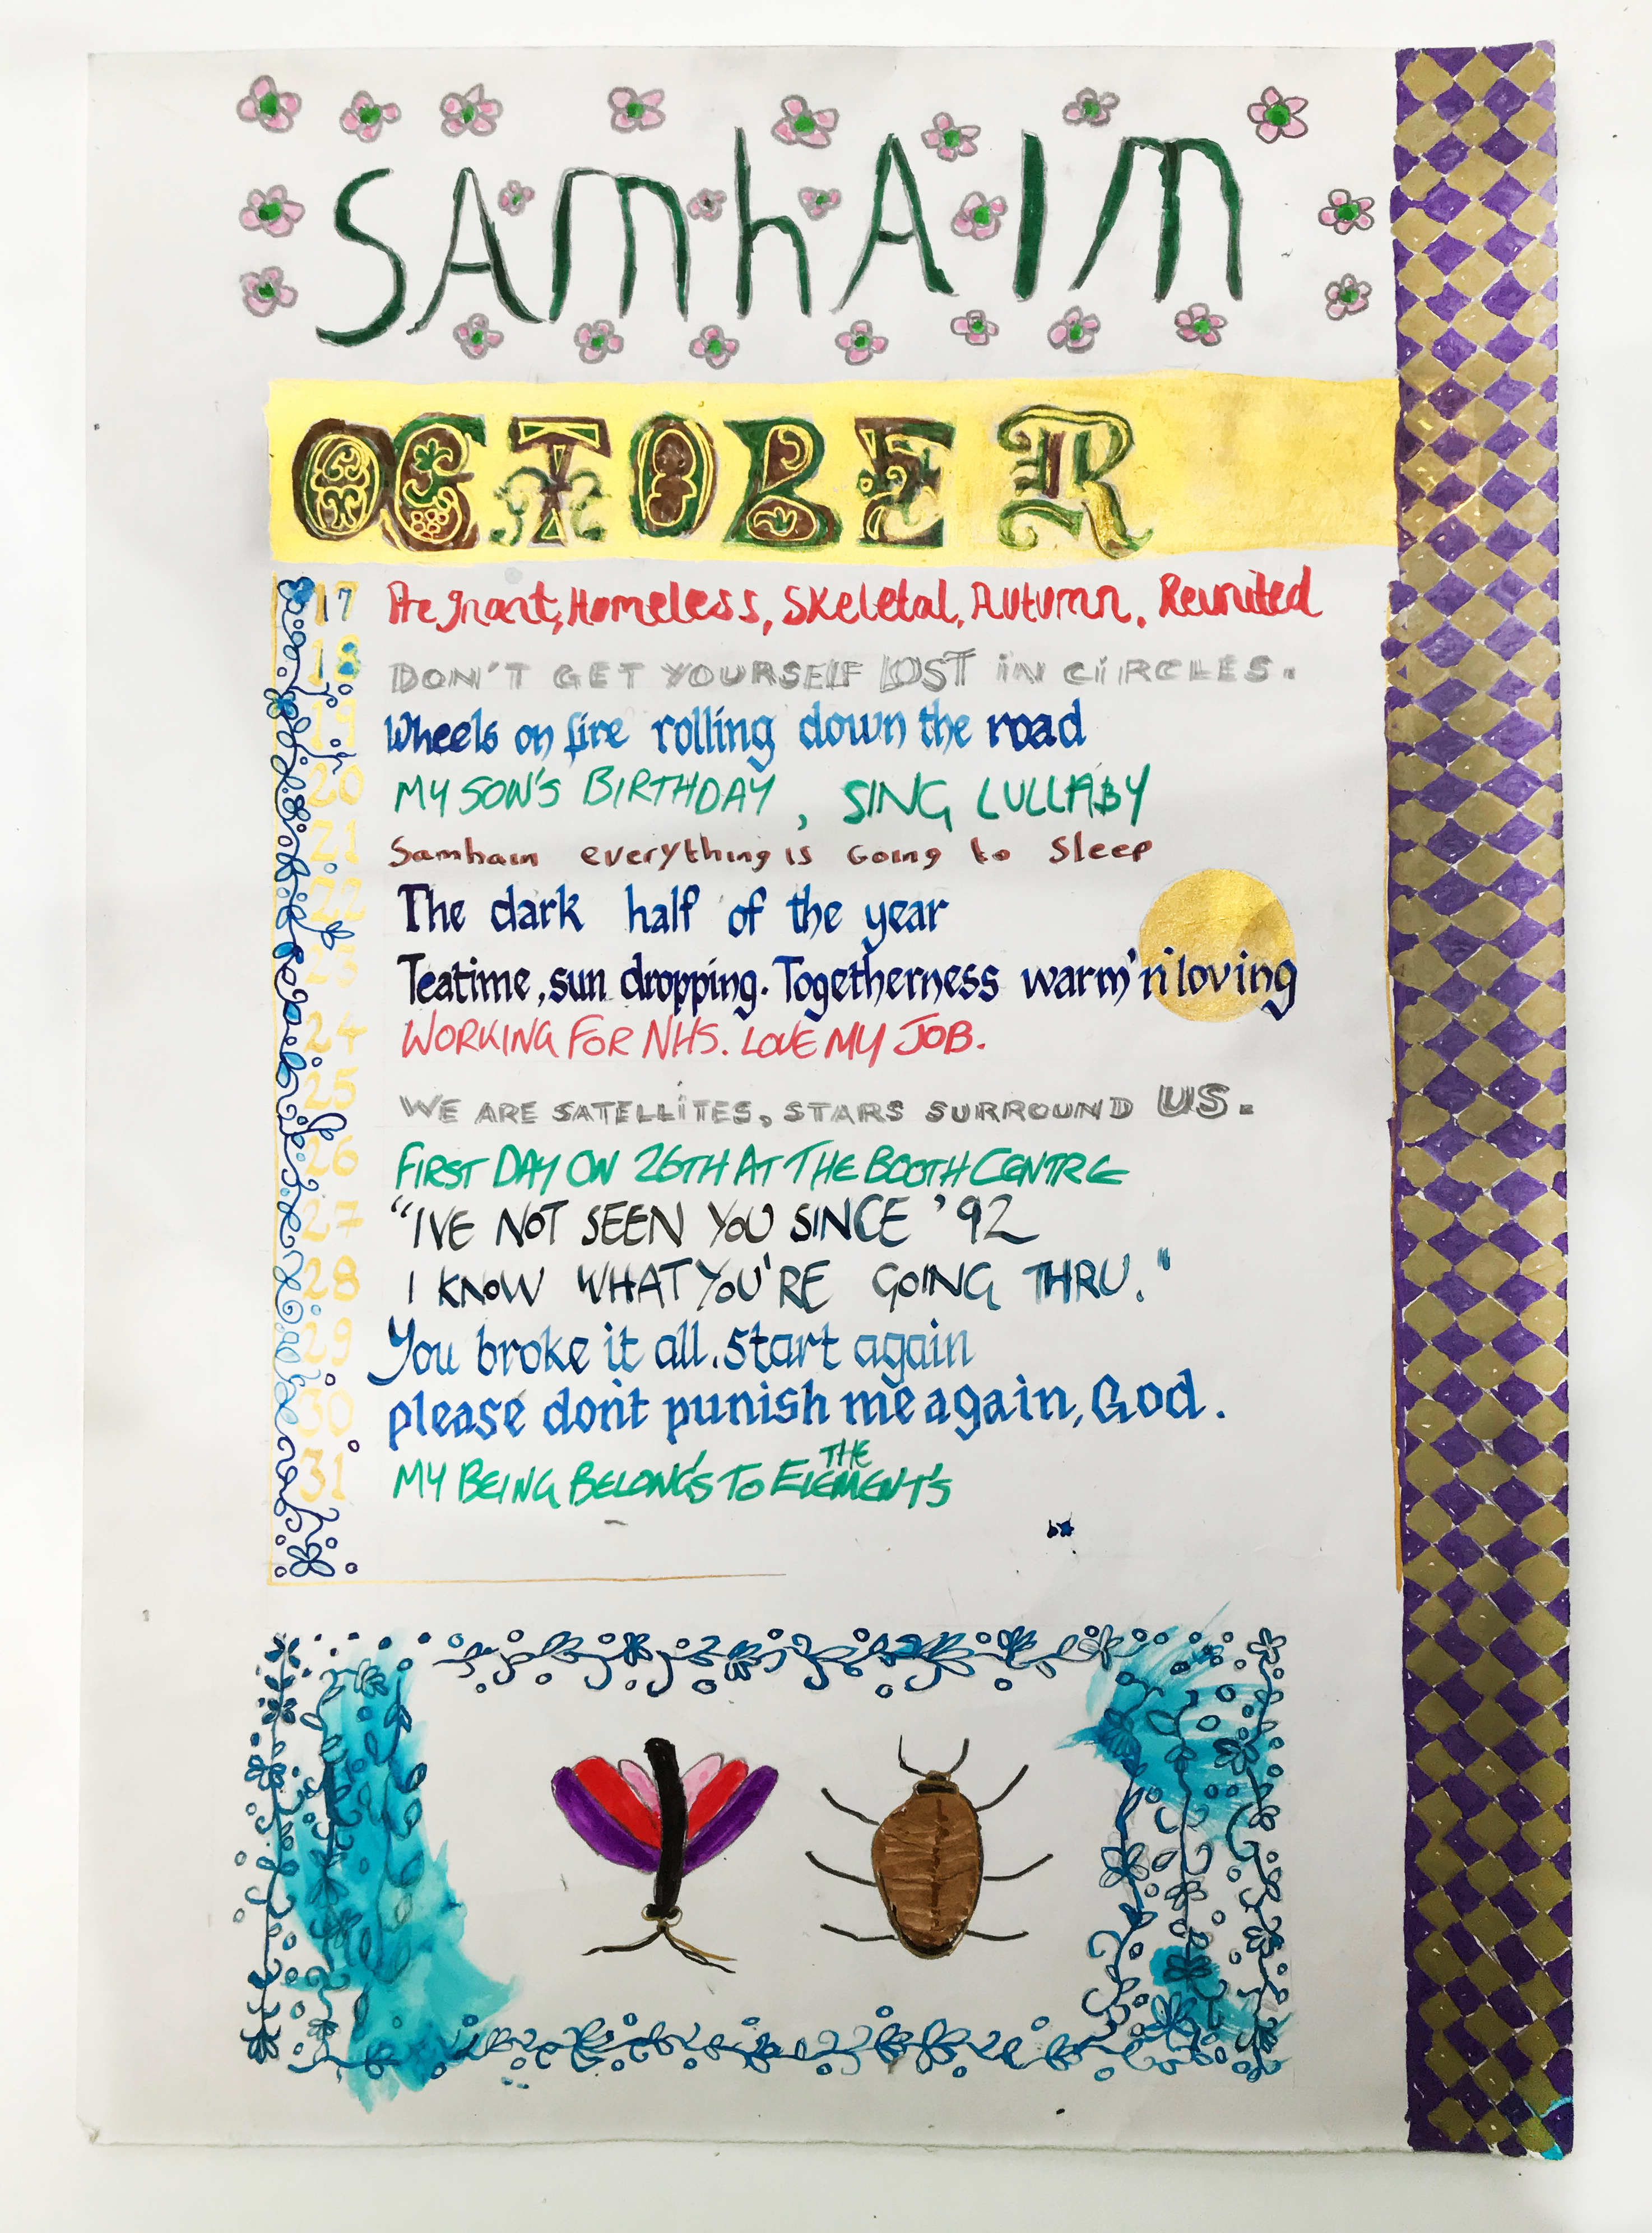 SAMhAIM
OCTOBER
17 Pregnant, Homeless, Skeletal, Autumn. Reunited
18 DON'T GET YOURSELF LOST iN CiRCLES.
19 Wheels on fire rolling down the road
20 MY SON'S BIRTHDAY, SING LULLABY
21 Samhain everything is Going to Sleep
22 The dark half of the year
23 Teatime, sun dropping. Togetherness warm'n'loving
24 WORKING FOR NHS. LOVE MY JOB.
25 WE ARE SATELLiTES, STARS SURROUND US.
26 FIRST DAY ON 26TH AT THE BOOTH CENTRE
27 "I'VE NOT SEEN YOU SINCE '92
28 I KNOW WHAT YOU'RE GOING THRU."
29 You broke it all. Start again
30 please don't punish me again, God.
31 MY BEING BELONG'S TO THE ELEMENT'S